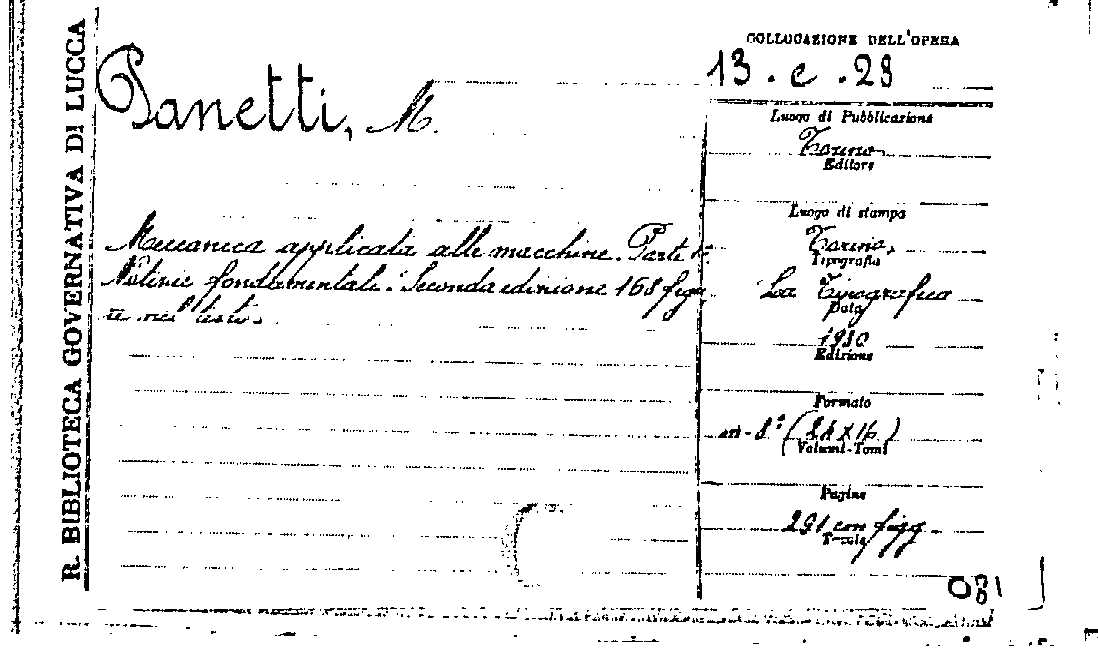 R. BIBLIOTECA GOVERNATIVA DI LUCCA
Panetti, M.
Meccanica applicata alle macchine. Parte 1ª
Notizie fondamentali. Seconda edizione 168 figu
re nel testo.
COLLOCAZIONE DELL'OPERA
13. c. 28
Luogo di Pubblicazione
Torino
Editore
Luogo di stampa
Torino,
Tipografia
La Tipografica
Data
1930
Edizione
Formato
in-8° (24 x 16)
Volumi-Tomi
Pagine
291 con figg.
Tavole
081